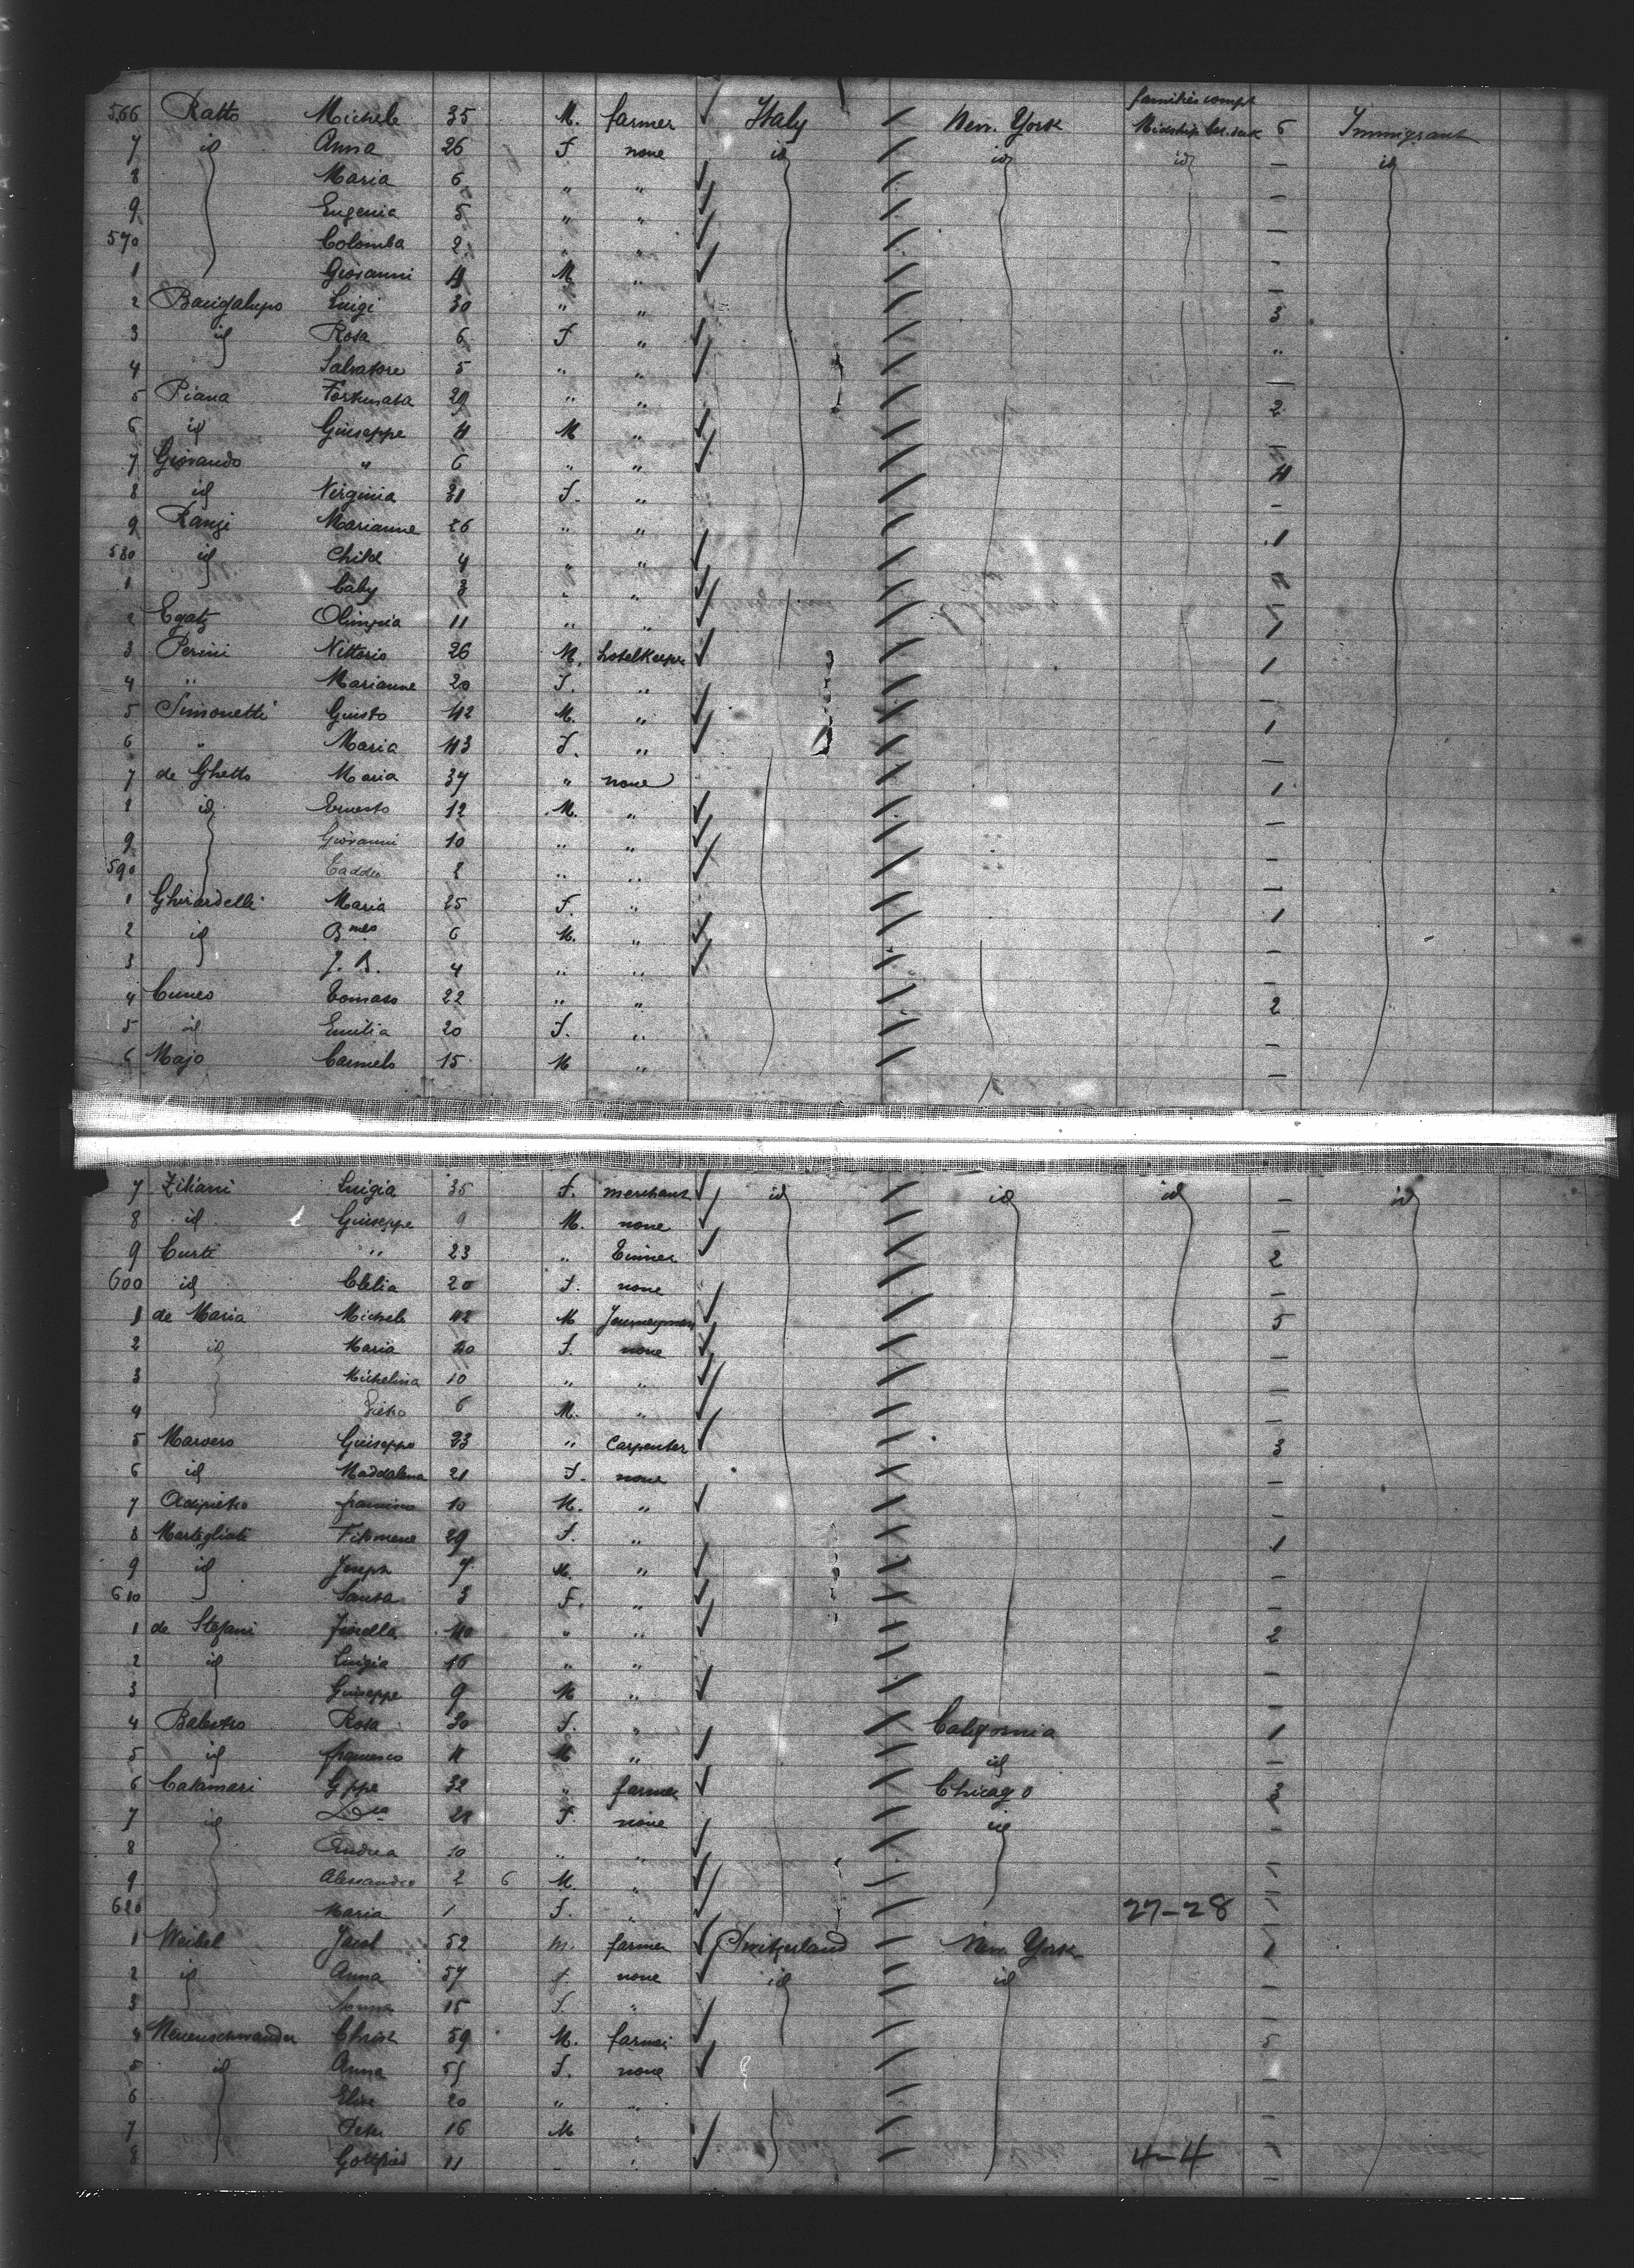 families compt
566 Ratto Michele 35 M. farmer Italy New York Midship bet. deck 6 Immigrant
7 id Anna 26 F none id id id — id
8 Maria 6 " " —
9 Eugenia 5 " " —
570 Colomba 2 " " —
1 Giovanni 4 M " —
2 Bacigalupo Luigi 30 " " 3
3 id Rosa 6 F " "
4 Salvatore 5 " " —
5 Piana Fortunata 29 " " 2
6 id Giuseppe 4 M "
7 Giovando " 6 " " 4
8 id Virginia 31 F. " —
9 Ranzi Marianne 26 " " 1
580 id Child 4 " "
1 baby 3 " "
2 Egatz Olimpia 11 " " 1
3 Perini Vittorio 26 M. hotelkeeper 1
4 " Marianne 20 F. " —
5 Simonetti Giusto 42 M. " 1
6 " Maria 43 F. " —
7 de Ghetto Maria 37 " none 1
8 id Ernesto 12 M. " —
9 Giovanni 10 " " —
590 Taddeo 2 " " —
1 Ghirardelli Maria 25 F. " 1
2 id Bmeo 6 M. " —
3 J. B. 4 " " —
4 Cuneo Tomaso 22 " " 2
5 id Emilia 20 F. " —
6 Majo Carmelo 15 M " —
7 Ziliani Luigia 35 F. merchant id id id — id
8 id Giuseppe 9 M. none —
9 Curti " 23 " 2
600 id Clelia 20 F. none —
1 de Maria Michele 42 M Journeyman 5
2 id Maria 40 F. none —
3 Michelina 10 " " —
4 Pietro 6 M. " —
5 Marvero Giuseppe 23 " Carpenter 3
6 id Maddalena 21 F. none —
7 Adipietro 10 M. " —
8 Martigliati Filomene 29 F. " 1
9 id Joseph 7 M. " —
610 Santa 3 F. " —
1 de Stefani 40 " " 2
2 id Luigia 16 " " —
3 Giuseppe 9 M " —
4 Balestro Rosa 30 F. " California 1
5 id francesco 4 M " id —
6 Catamari Gppe 32 " farmer Chicago 3
7 id 28 F. none id —
8 Andrea 10 " "
9 Alessandro 2 6 M. "
620 Maria 1 F. " 27-28
1 Weibel Jacob 52 m. farmer Switzerland New York 1
2 id Anna 57 f none id id —
3 15 F. " —
4 Neuenschwander Christ 59 M. farmer 5
5 id Anna 55 F. none —
6 Elise 20 " "
7 Peter 16 M " —
8 Gottfried 11 4-4 —